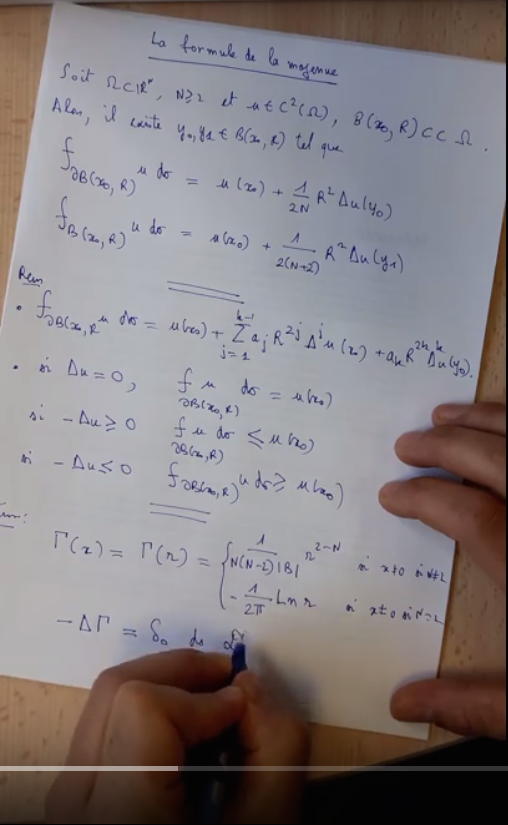 La formule de la moyenne
Soit Ω ⊂ ℝᴺ, N ≥ 2 et u ∈ C²(Ω), B(x₀, R) ⊂⊂ Ω.
Alors, il existe y₀, y₁ ∈ B(x₀, R) tel que
⨍_{∂B(x₀, R)} u dσ = u(x₀) + 1/2N R² Δu(y₀)
⨍_{B(x₀, R)} u dσ = u(x₀) + 1/2(N+2) R² Δu(y₁)
Rem
• ⨍_{∂B(x₀, R} u dσ = u(x₀) + ∑_{j=1}^{k-1} a_j R^{2j} Δ^j u(x₀) + a_k R^{2k} Δ^k u(y₀).
• si Δu = 0, ⨍_{∂B(x₀, R)} u dσ = u(x₀)
si -Δu ≥ 0 ⨍_{∂B(x₀, R)} u dσ ≤ u(x₀)
si -Δu ≤ 0 ⨍_{∂B(x₀, R)} u dσ ≥ u(x₀)
Γ(x) = Γ(r) = { 1/N(N-2)|B| r^{2-N} si x≠0 si N≠2
-1/2π Ln r si x≠0 si N=2
-ΔΓ = δ₀ ds